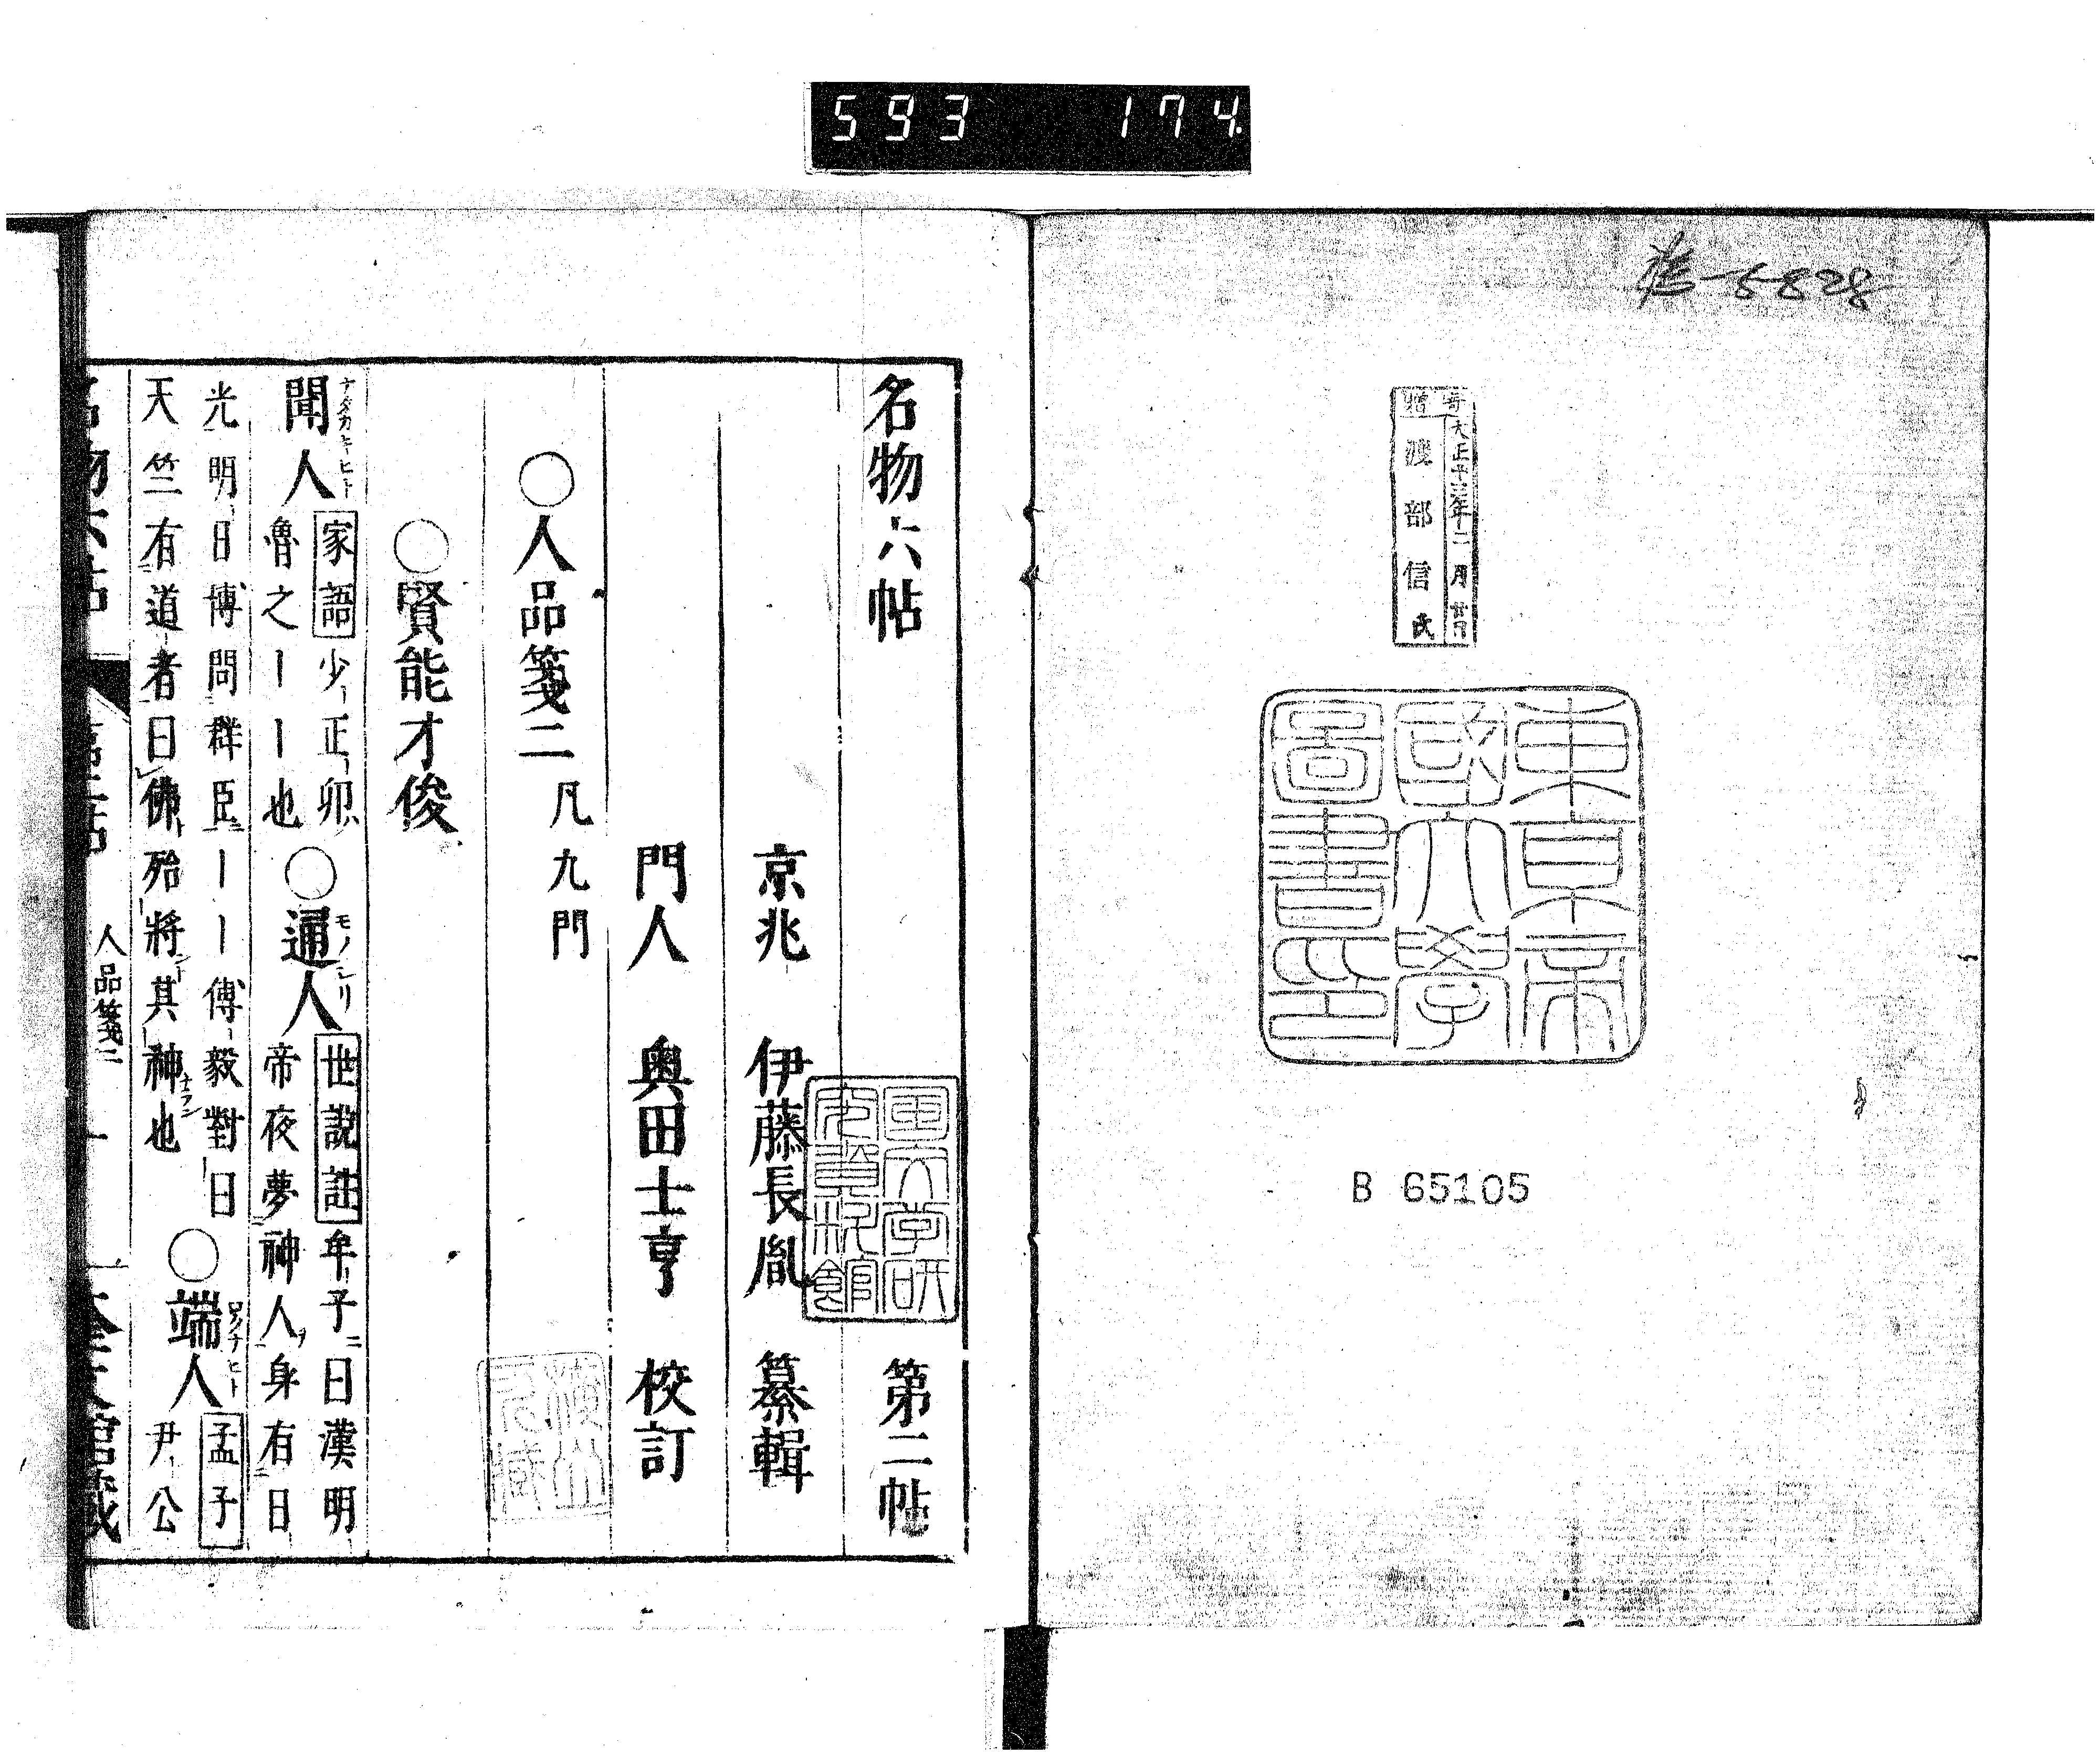 593 174.
5-828
寄贈
大正十三年二月廿日
渡部信氏
東京帝
國大學
圖書印
B 65105
名物六帖 第二帖
京兆 伊藤長胤 纂輯
門人 奥田士亨 校訂
○人品箋二 凡九門
○賢能才俊
聞人 ナダカキヒト 家語 少正卯
魯之――也 ○通人 モノシリ 世說註 牟子曰漢明
帝夜夢神人身有日
光明日博問群臣――傅毅對曰
天竺有道者曰佛殆將其神也 ○端人 孟子
尹公
人品箋二